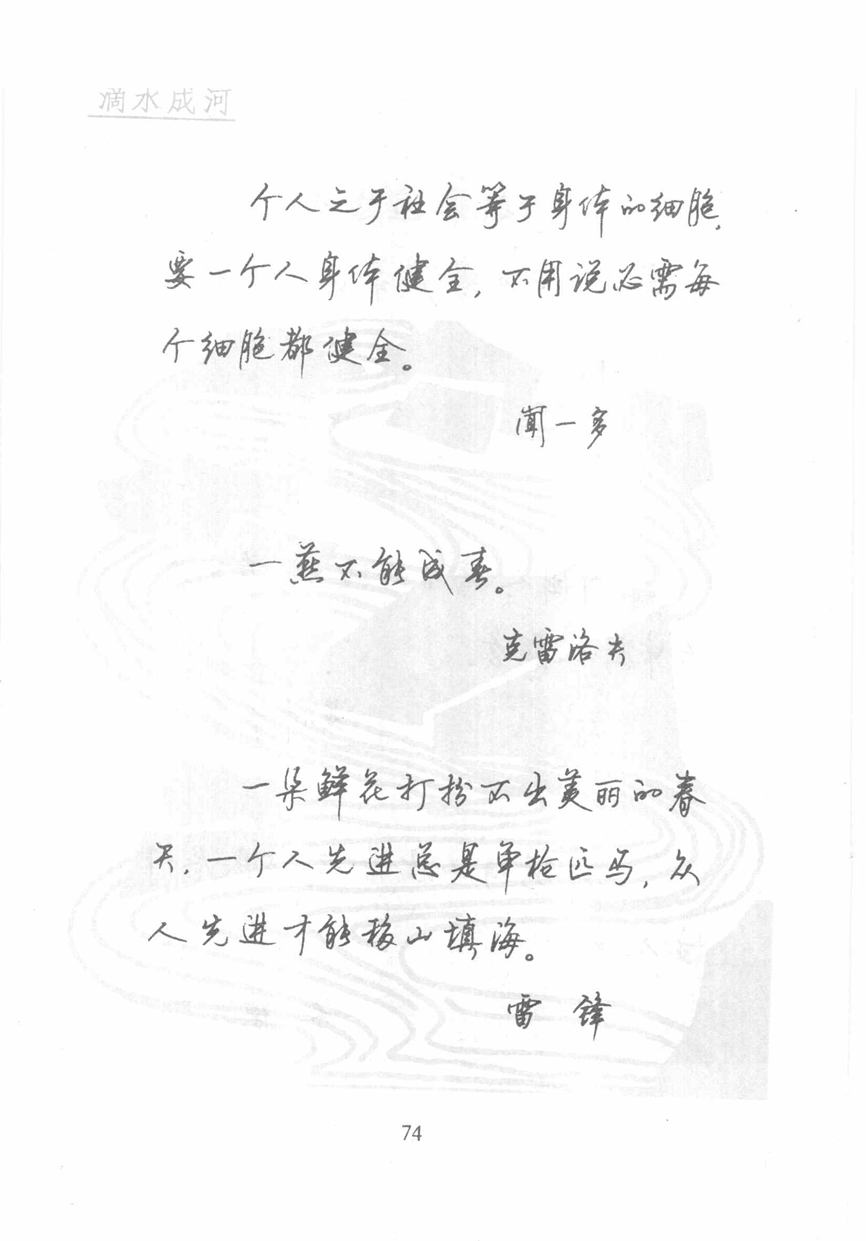 滴水成河
个人之于社会等于身体的细胞,
要一个人身体健全,不用说必需每
个细胞都健全。
闻一多
一燕不能成春。
克雷洛夫
一朵鲜花打扮不出美丽的春
天,一个人先进总是单枪匹马,众
人先进才能移山填海。
雷 锋
74